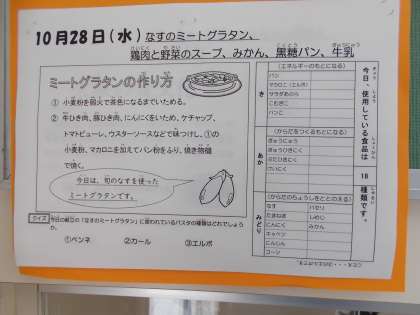 10月28日(水) なすのミートグラタン、
鶏肉と野菜のスープ、みかん、黒糖パン、牛乳
ミートグラタンの作り方
① 小麦粉を弱火で茶色になるまでいためる。
② 牛ひき肉、豚ひき肉、にんにくをいため、ケチャップ、
トマトピューレ、ウスターソースなどで味つけし、①の
小麦粉、マカロニを加えてパン粉をふり、焼き物機
で焼く。
今日は、旬のなすを使った
ミートグラタンです。
クイズ 今日の献立の「なすのミートグラタン」に使われているパスタの種類はどれでしょう
か。
①ペンネ ②カール ③エルボ
今日、使用している食品は 18 種類です。
き
(エネルギーのもとになる)
パン
マカロニ(エルボ)
サラダあぶら
こむぎこ
パンこ
あか
(からだをつくるもとになる)
ぎゅうにゅう
ぎゅうひきにく
ぶたひきにく
けいにく
みどり
(からだのちょうしをととのえる)
なす パセリ
たまねぎ しめじ
にんにく みかん
キャベツ
にんじん
コーン